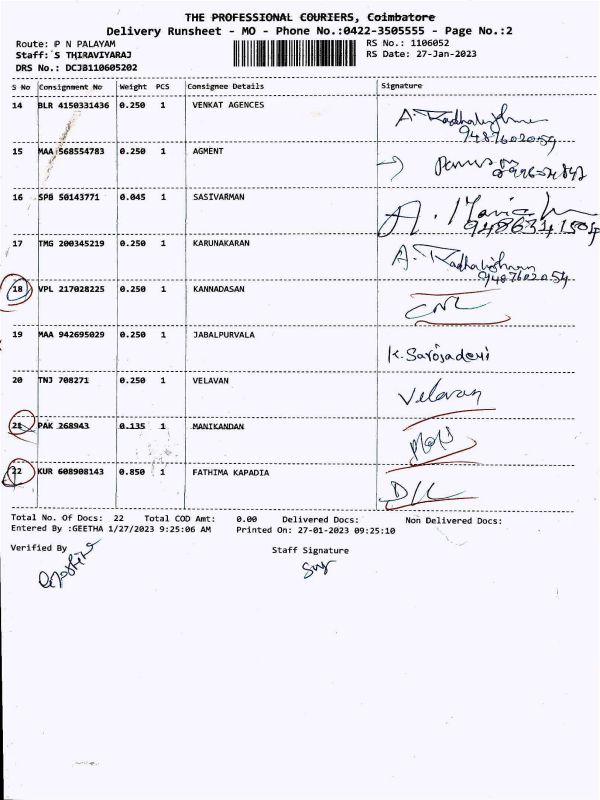 THE PROFESSIONAL COURIERS, Coimbatore
Delivery Runsheet - MO - Phone No.:0422-3505555 - Page No.:2
Route: P N PALAYAM RS No.: 1106052
Staff: S THIRAVIYARAJ RS Date: 27-Jan-2023
DRS No.: DCJB110605202
S No Consignment No Weight PCS Consignee Details Signature
14 BLR 4150331436 0.250 1 VENKAT AGENCES A. Radhakrishnan
9487602054
15 MAA 568554783 0.250 1 AGMENT
16 SPB 50143771 0.045 1 SASIVARMAN A.
17 TMG 200345219 0.250 1 KARUNAKARAN A. Radhakrishnan
9487602054
18 VPL 217028225 0.250 1 KANNADASAN
19 MAA 942695029 0.250 1 JABALPURVALA K. Sarojadevi
20 TNJ 708271 0.250 1 VELAVAN Velavan
21 PAK 268943 0.135 1 MANIKANDAN
22 KUR 608908143 0.850 1 FATHIMA KAPADIA D/L
Total No. Of Docs: 22 Total COD Amt: 0.00 Delivered Docs: Non Delivered Docs:
Entered By :GEETHA 1/27/2023 9:25:06 AM Printed On: 27-01-2023 09:25:10
Verified By Staff Signature